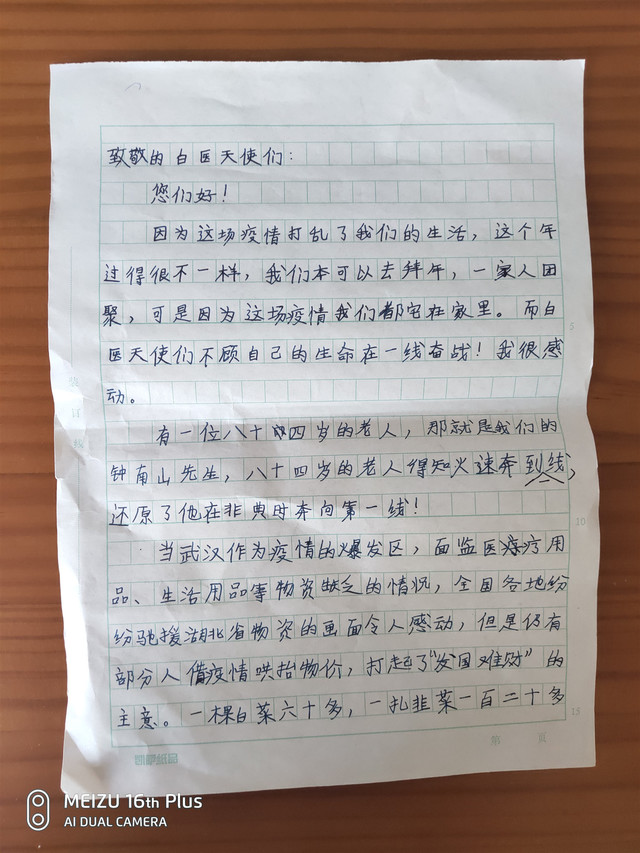 致敬的白医天使们：
您们好！
因为这场疫情打乱了我们的生活，这个年
过得很不一样，我们本可以去拜年，一家人团
聚，可是因为这场疫情我们都宅在家里。而白
医天使们不顾自己的生命在一线奋战！我很感
动。
有一位八十四岁的老人，那就是我们的
钟南山先生，八十四岁的老人得知火速奔到一线，
还原了他在非典时奔向第一线！
当武汉作为疫情的爆发区，面监医疗用
品、生活用品等物资缺乏的情况，全国各地纷
纷驰援湖北省物资的画面令人感动，但是仍有
部分人借疫情哄抬物价，打起了“发国难财”的
主意。一棵白菜六十多，一扎韭菜一百二十多
第 页
装
订
5
10
15
MEIZU 16th Plus
AI DUAL CAMERA